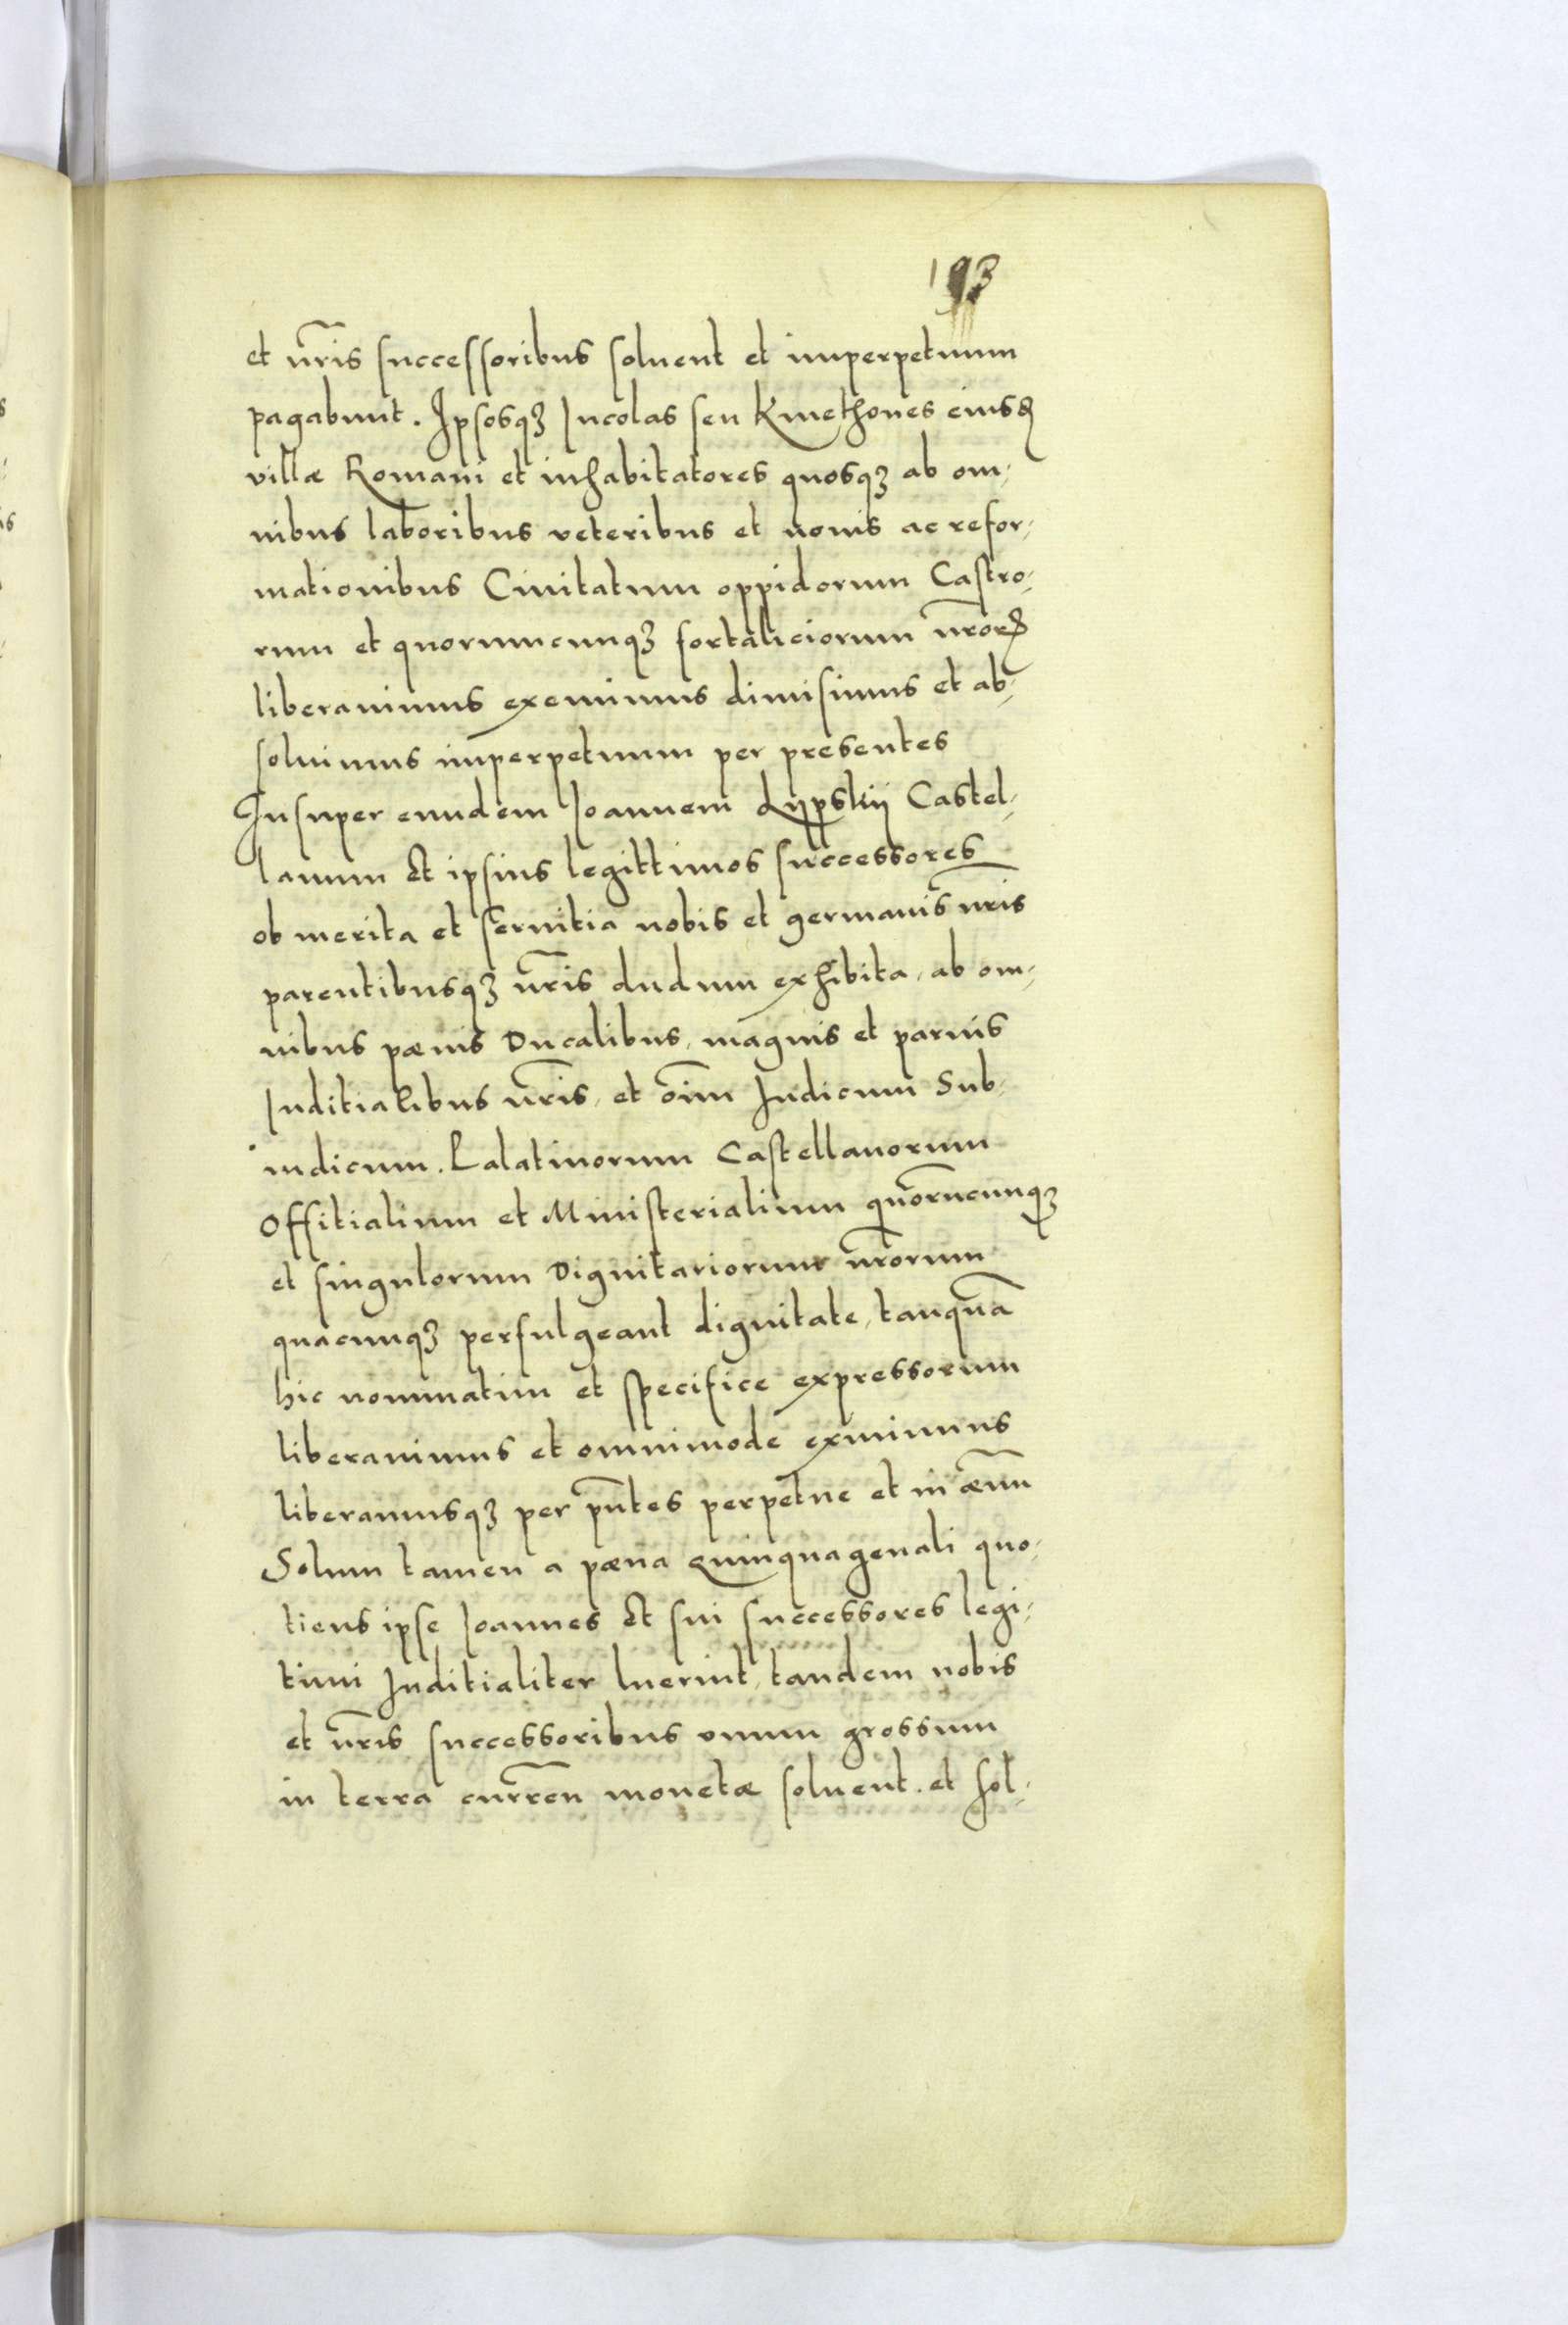 193
et nr̃is successoribus soluent et imperpetuum
pagabunt. Ipsosqꝫ Incolas seu Kmethones eiusd
villæ Romani et inhabitatores quosqꝫ ab om-
nibus laboribus veteribus et nouis ac refor-
mationibus Ciuitatum oppidorum Castro-
rum et quorumcunqꝫ fortaliciorum nr̃orꝝ
liberauimus exemimus dimisimus et ab-
soluimus imperpetuum per presentes
Insuper eundem Ioannem Lypskij Castel-
lanum Et ipsius legittimos successores
ob merita et seruitia nobis et germanis nr̃is
parentibusqꝫ nr̃is dudum exhibita, ab om-
nibus pænis Ducalibus, magnis et paruis
Iuditialibus nr̃is, et oĩm Iudicum Sub-
iudicum. Palatinorum Castellanorum
Offitialium et Ministerialium quor̃ucunqꝫ
et singulorum Dignitariorum nr̃orum
quacunqꝫ perfulgeant dignitate, tanquã
hic nominatim et specifice expressorum
liberauimus et omnimode eximimus
liberamusqꝫ per pñtes perpetue et in æuũ
Solum tamen a pæna quinquagenali quo-
tiens ipse Ioannes Et sui successores legi-
timi Iuditialiter luerint, tandem nobis
et nr̃is successoribus vnum grossum
in terra curreñ monetæ soluent. et sol-